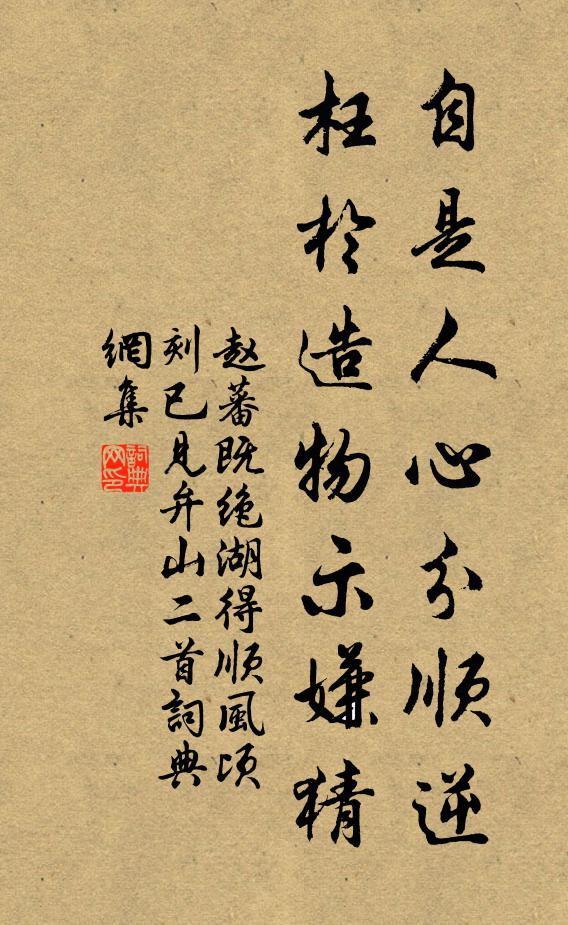 自是人心分順逆
枉於造物示嫌猜
赵蕃既绝湖得順風頃
刻已見弁山二首詞典
網集
詞典
网印